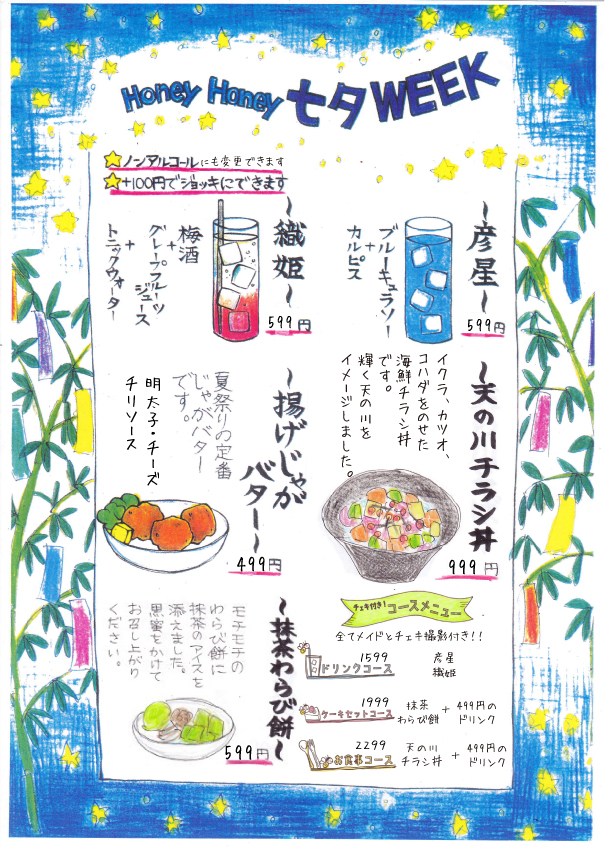 Honey Honey 七夕 WEEK
ノンアルコールにも変更できます
+100円でジョッキにできます
～彦星～
ブルーキュラソー
+
カルピス
599円
～織姫～
梅酒
+
グレープフルーツ
ジュース
+
トニックウォーター
599円
～天の川チラシ丼
イクラ、カツオ、
コハダをのせた
海鮮チラシ丼
です。
輝く天の川を
イメージしました。
999円
～揚げじゃが
バター～
夏祭りの定番
じゃがバター
です。
明太子・チーズ
チリソース
499円
～抹茶わらび餅～
モチモチの
わらび餅に
抹茶のアイスを
添えました。
黒蜜をかけて
お召し上がり
ください。
599円
チェキ付き！コースメニュー
全てメイドとチェキ撮影付き！！
ドリンクコース
1599
彦星
織姫
ケーキセットコース
1999
抹茶
わらび餅
+
499円の
ドリンク
お食事コース
2299
天の川
チラシ丼
+
499円の
ドリンク